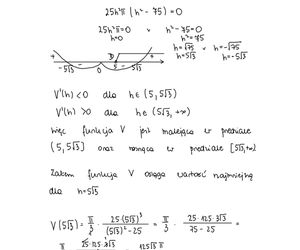 25h²π (h² - 75) = 0
25h²π = 0 v h² - 75 = 0
h = 0 h² = 75
h = √75 v h = -√75
h = 5√3 h = -5√3
+ - - +
-5√3 0 5 5√3
V'(h) < 0 dla h ∈ (5, 5√3)
V'(h) > 0 dla h ∈ (5√3, +∞)
Więc funkcja V jest malejąca w przedziale
(5, 5√3] oraz rosnąca w przedziale [5√3, +∞)
Zatem funkcja V osiąga wartość najmniejszą
dla h = 5√3
V(5√3) = π/3 · 25(5√3)³/((5√3)² - 25) = π/3 · 25·125·3√3/(75 - 25) =